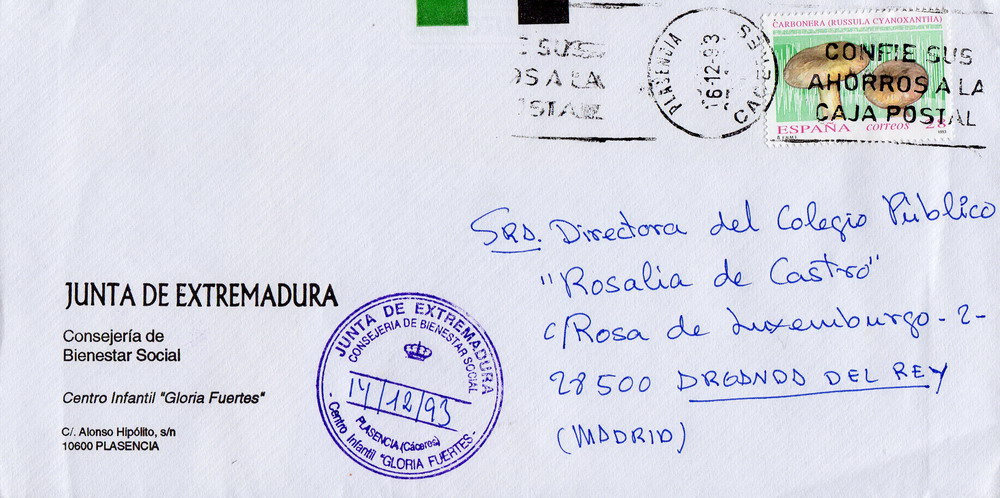 CARBONERA (RUSSULA CYANOXANTHA)
E SUS
OS A LA
OSTAL
PLASENCIA
16-12-93
CACERES
CONFIE SUS
AHORROS A LA
CAJA POSTAL
ESPAÑA correos 28
SRA. Directora del Colegio Público
"Rosalia de Castro"
c/Rosa de Luxemburgo - 2-
28500 ARGANDA DEL REY
(MADRID)
JUNTA DE EXTREMADURA
Consejería de
Bienestar Social
Centro Infantil "Gloria Fuertes"
C/. Alonso Hipólito, s/n
10600 PLASENCIA
JUNTA DE EXTREMADURA
CONSEJERIA DE BIENESTAR SOCIAL
14/12/93
PLASENCIA (Cáceres)
- Centro Infantil "GLORIA FUERTES" -